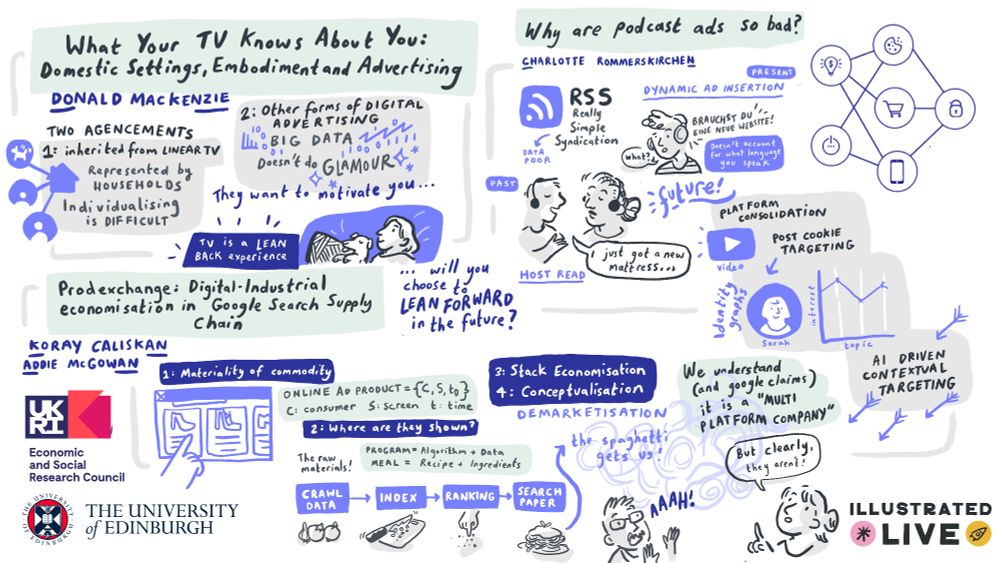 What Your TV Knows About You:
Domestic Settings, Embodiment and Advertising
DONALD MACKENZIE
TWO AGENCEMENTS
1: inherited from LINEAR TV
Represented by
HOUSEHOLDS
Individualising
is DIFFICULT
2: Other forms of DIGITAL
ADVERTISING
BIG DATA
Doesn't do GLAMOUR
They want to motivate you...
TV is a LEAN
BACK experience
... will you
choose to
LEAN FORWARD
in the future?
Why are podcast ads so bad?
CHARLOTTE ROMMERSKIRCHEN
RSS
Really
Simple
Syndication
DATA
POOR
PRESENT
DYNAMIC AD INSERTION
BRAUCHST DU
EINE NEUE WEBSITE!
What?
Doesn't account
for what language
you speak
PAST
I just got a new
mattress...
HOST READ
future!
PLATFORM
CONSOLIDATION
video
POST COOKIE
TARGETING
Identity
graphs
Sarah
interest
topic
AI DRIVEN
CONTEXTUAL
TARGETING
Prodexchange: Digital-Industrial
economisation in Google Search Supply
Chain
KORAY CALISKAN
ADDIE McGOWAN
1: Materiality of commodity
ONLINE AD PRODUCT = {C, S, t0}
C: consumer S: screen t: time
2: Where are they shown?
The raw
materials!
PROGRAM = Algorithm + Data
MEAL = Recipe + Ingredients
CRAWL
DATA
INDEX
RANKING
SEARCH
PAPER
3: Stack Economisation
4: Conceptualisation
DEMARKETISATION
the spaghetti
gets us!
AAAH!
We understand
(and google claims)
it is a "MULTI
PLATFORM COMPANY"
But clearly,
they aren't!
UK
RI
Economic
and Social
Research Council
THE UNIVERSITY
of EDINBURGH
THE UNIVERSITY
OF EDINBURGH
ILLUSTRATED
LIVE